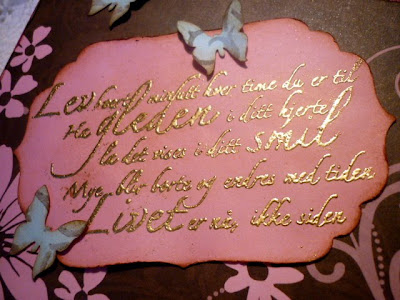 Lev hvert minutt hver time du er til
Ha gleden i ditt hjerte
la det vises i ditt smil
Mye blir borte og endres med tiden
Livet er nå, ikke siden